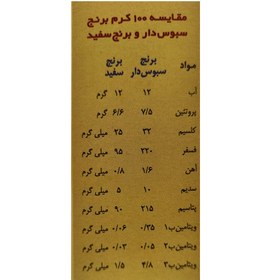 مقایسه ۱۰۰ گرم برنج
سبوس‌دار و برنج سفید
مواد برنج سبوس‌دار برنج سفید
آب ۱۲ ۱۲ گرم
پروتئین ۷/۵ ۶/۶ گرم
کلسیم ۳۲ ۲۵ میلی گرم
فسفر ۲۲۰ ۹۵ میلی گرم
آهن ۱/۶ ۰/۸ میلی گرم
سدیم ۱۰ ۵ میلی گرم
پتاسیم ۲۱۵ ۹۰ میلی گرم
ویتامین ب۱ ۰/۳۵ ۰/۰۶ میلی گرم
ویتامین ب۲ ۰/۰۵ ۰/۰۳ میلی گرم
ویتامین ب۳ ۴/۸ ۱/۵ میلی گرم